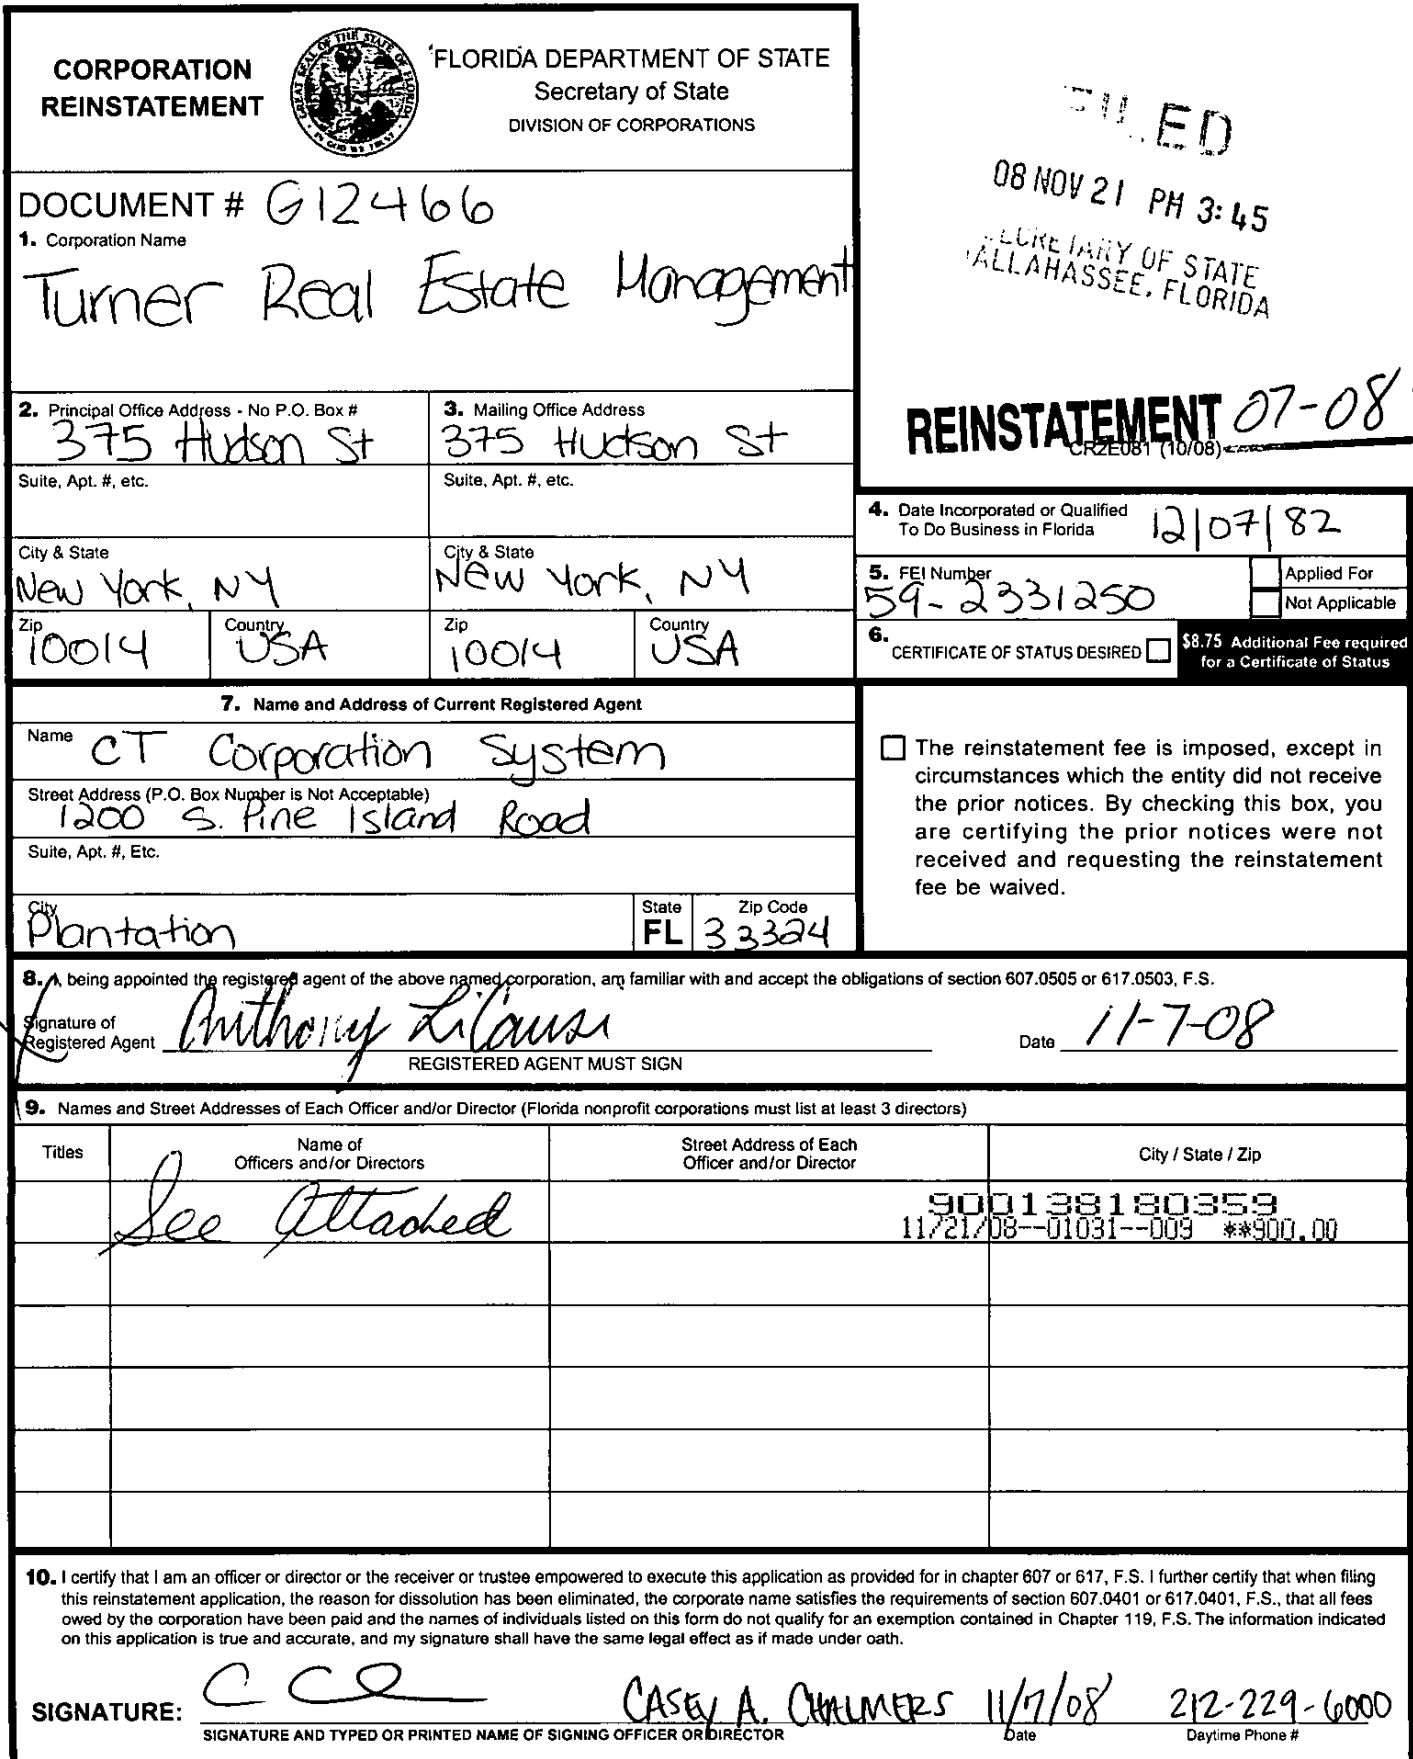 CORPORATION
REINSTATEMENT
FLORIDA DEPARTMENT OF STATE
Secretary of State
DIVISION OF CORPORATIONS
FILED
08 NOV 21 PM 3:45
SECRETARY OF STATE
TALLAHASSEE, FLORIDA
DOCUMENT # G12466
1. Corporation Name
Turner Real Estate Management
REINSTATEMENT 07-08
CR2E081 (10/08)
2. Principal Office Address - No P.O. Box #
375 Hudson St
3. Mailing Office Address
375 Hudson St
Suite, Apt. #, etc.
Suite, Apt. #, etc.
4. Date Incorporated or Qualified
To Do Business in Florida
12/07/82
City & State
New York, NY
City & State
New York, NY
5. FEI Number
59-2331250
Applied For
Not Applicable
Zip
10014
Country
USA
Zip
10014
Country
USA
6. CERTIFICATE OF STATUS DESIRED
$8.75 Additional Fee required
for a Certificate of Status
7. Name and Address of Current Registered Agent
Name CT Corporation System
Street Address (P.O. Box Number is Not Acceptable)
1200 S. Pine Island Road
Suite, Apt. #, Etc.
City
Plantation
State
FL
Zip Code
33324
The reinstatement fee is imposed, except in
circumstances which the entity did not receive
the prior notices. By checking this box, you
are certifying the prior notices were not
received and requesting the reinstatement
fee be waived.
8. I, being appointed the registered agent of the above named corporation, am familiar with and accept the obligations of section 607.0505 or 617.0503, F.S.
Signature of
Registered Agent
Anthony LiCausi
REGISTERED AGENT MUST SIGN
Date 11-7-08
9. Names and Street Addresses of Each Officer and/or Director (Florida nonprofit corporations must list at least 3 directors)
Titles
Name of
Officers and/or Directors
Street Address of Each
Officer and/or Director
City / State / Zip
See Attached
900138180359
11/21/08--01031--009 **900.00
10. I certify that I am an officer or director or the receiver or trustee empowered to execute this application as provided for in chapter 607 or 617, F.S. I further certify that when filing
this reinstatement application, the reason for dissolution has been eliminated, the corporate name satisfies the requirements of section 607.0401 or 617.0401, F.S., that all fees
owed by the corporation have been paid and the names of individuals listed on this form do not qualify for an exemption contained in Chapter 119, F.S. The information indicated
on this application is true and accurate, and my signature shall have the same legal effect as if made under oath.
SIGNATURE:
CASEY A. CHALMERS 11/7/08 212-229-6000
SIGNATURE AND TYPED OR PRINTED NAME OF SIGNING OFFICER OR DIRECTOR
Date
Daytime Phone #